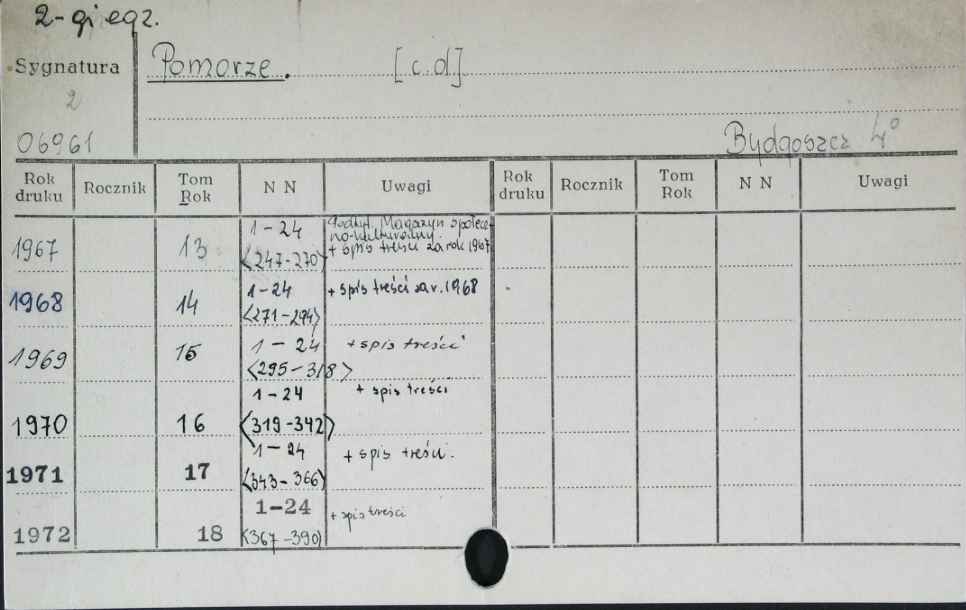 2-gi egz.
Sygnatura Pomorze. [c.d]
2
06961 Bydgoszcz 4°
Rok druku Rocznik Tom Rok N N Uwagi Rok druku Rocznik Tom Rok N N Uwagi
1967 13 1-24 Podtyt. Magazyn społecz-
no-kulturalny.
<247-270> + spis treści za rok 1967
1968 14 1-24 + spis treści za r. 1968
<271-294>
1969 15 1-24 + spis treści
<295-318>
1-24 + spis treści
1970 16 <319-342>
1-24 + spis treści.
1971 17 <343-366>
1-24 + spis treści
1972 18 <367-390>